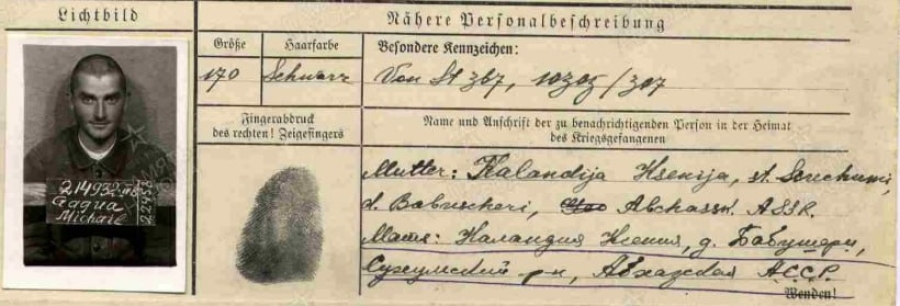 Lichtbild
Nähere Personalbeschreibung
Größe
Haarfarbe
Besondere Kennzeichen:
170
Schwarz
Von St 367, 10305/307
Fingerabdruck
des rechten! Zeigefingers
Name und Anschrift der zu benachrichtigenden Person in der Heimat
des Kriegsgefangenen
Mutter: Kalandija Ksenija, st. Suchumi,
d. Babuscheri, Abchassk. ASSR.
Мать: Каландия Ксения, д. Бабушери,
Сухумский р-н, Абхазская АССР.
Wenden!
Gagua
Michail